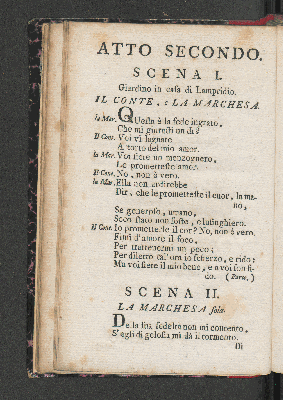 ATTO SECONDO.
SCENA I.
Giardino in casa di Lampridio.
IL CONTE, e LA MARCHESA.
la Mar. QUesta è la fede ingrato,
Che mi giurasti un dì?
Il Cont. Voi vi lagnate
A torto del mio amor.
la Mar. Voi siete un menzognero,
Le prometteste amor.
Il Cont. No, non è vero.
la Mar. Ella non ardirebbe
Dir, che le prometteste il cuor, la ma-
no,
Se generoso, umano,
Seco stato non foste, e lusinghiero.
Il Cont. Io promettele il cor? No, non è vero.
Finsi d'amore il foco,
Per trattenermi un poco;
Per diletto tall'ora io scherzo, e rido:
Ma voi siete il mio bene, e a voi son fi-
do. (Parte.)
SCENA II.
LA MARCHESA sola.
DElla sua fede io non mi contento,
S'egli di gelosia mi dà il tormento.
Di